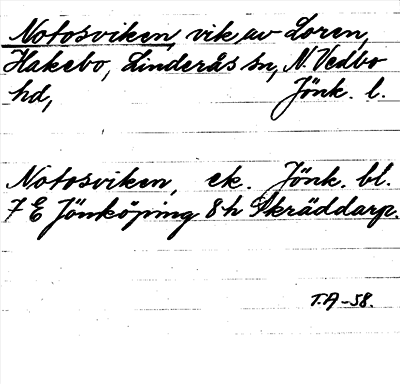 Notosviken, vik av Loren,
Hakebo, Linderås sn, N. Vedbo
hd, Jönk. l.
Notosviken, ek. Jönk. bl.
7 E Jönköping 8h Skräddarp.
T.A-58.